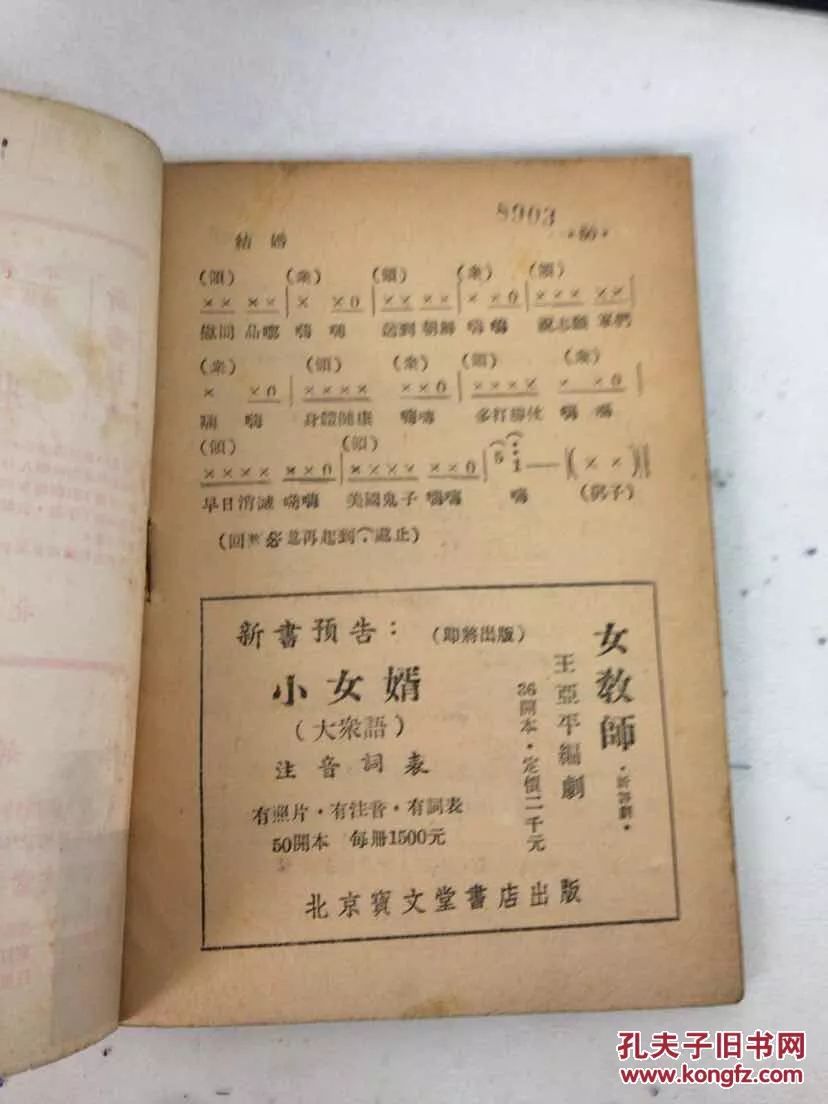 8903
結婚
·50·
(領) (衆) (領) (衆) (領)
×× ××|× ×0|×× ××|× ×0|××× ××|
慰問 品哪 嗨 嗨 送到 朝鮮 嗨 嗨 祝志願 軍們
(衆) (領) (衆) (領) (衆)
× ×0|×××× ××0|×××× × ×0|
嗨 嗨 身體健康 嗨嗨 多打勝仗 嗨 嗨
(領) (領)
×××× ××0|×××× ××0|5 1 — — |(× ×)‖
早日消滅 嗨嗨 美國鬼子 嗨嗨 嗨 (鑼子)
再起到
處止)
新書預告:
(即將出版)
小女婿
(大衆語)
注音詞表
有照片·有注音·有詞表
50開本 每冊1500元
女教師
王亞平編劇
36開本·定價二千元
北京寶文堂書店出版
孔夫子旧书网
www.kongfz.com